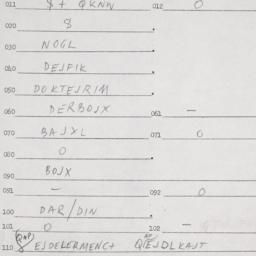 011 $ + QKNW 012 0
020 8
030 NOGL
040 DEJFIK
050 DOKTEJRIM
DERBOJX 061 —
070 BAJXL 071 0
080 0
090 BOJX
091 — 092 0
100 DAR/DIN
101 0 102 —
110 EJDELERMENC+ QIEJDLKAJT